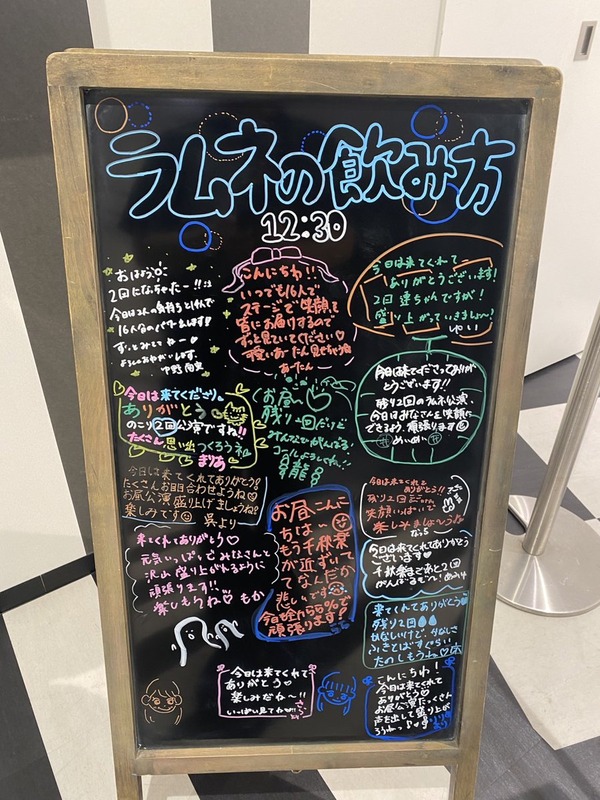 ラムネの飲み方
12:30
おはよう
2回になちゃたー!!
16人
ずっとみててねー♡
こんにちわ!!
いつでも16人で
ステージで笑顔を
皆にお届けするので
ずっと見ていてください♡
あーたん
今日は来てくれて
ありがとうございます!
2日連ちゃんですが!
盛り上がっていきましょ〜!
ゆい
今日は来てくださり。
ありがとう
のこり2回公演ですね!!
たくさん思い出
つくろうネ
まりあ
お昼〜♡
残り2回だけど
みんなでがんばる!
龍
今日は来てくださってありが
とうございます!!
残り2回のラムネ公演、
今日はみなさんと笑顔に
できるよう、頑張ります
めいめい
今日は来てくれてありがとう♡
たくさんお目合わせようね
お昼公演盛り上げましょうね♡
楽しみです 呉より
来てくれてありがとう♡
元気いっぱいでみなさんと
沢山盛り上がれるように
頑張ります!!
楽しもうね♡ もか
お昼こんに
ちは〜
もう千秋楽
が近ずいて
てなんだか
悲しいです
頑張ります!
今日は来てくれて
ありがとう!!
残り2回
笑顔いっぱいで
楽しみましょ〜うな
なる
今日は来てくれてありがとう
ございます♡
千秋楽まであと2回
がんばるぞ〜!
来てくれてありがとう♡
残り2回
かなしいけど、かなしさ
ふきとばすぐらい
たのしもうね♡
今日は来てくれて
ありがとう♡
楽しみだね〜!!
いっぱい見てね
こんにちわ!
今日は来てくれて
ありがとう♡
お昼公演たっくさん
声を出して盛り上が
ろうねっ